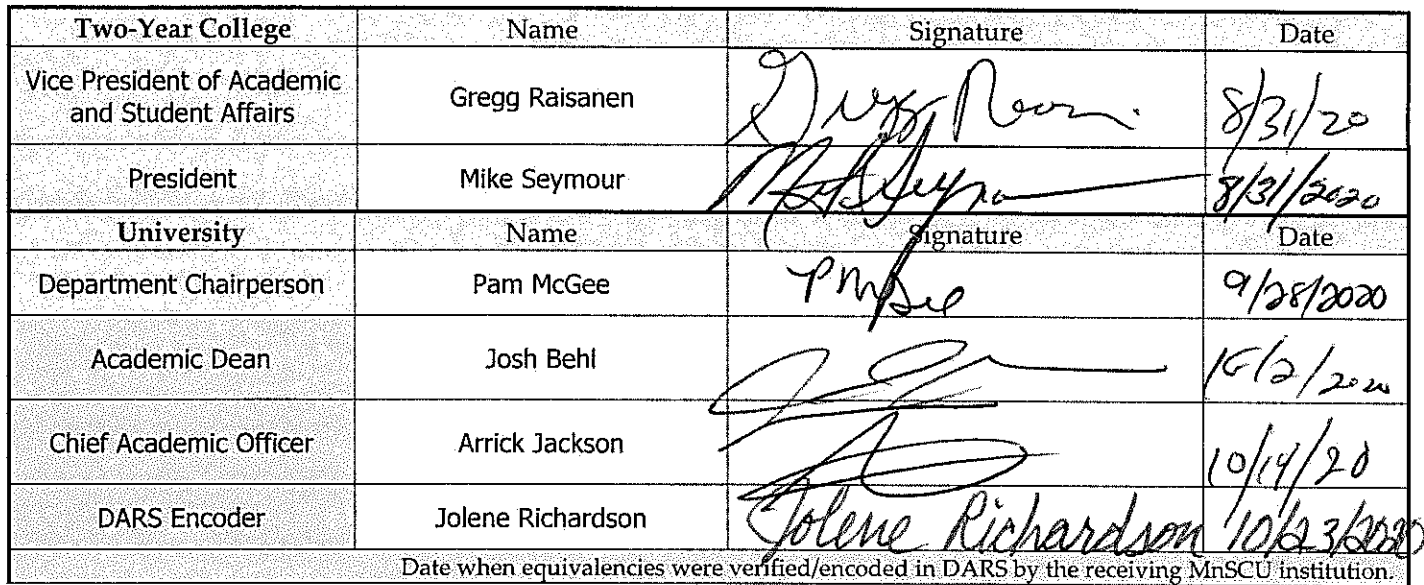 Two-Year College Name Signature Date
Vice President of Academic and Student Affairs Gregg Raisanen 8/31/20
President Mike Seymour 8/31/2020
University Name Signature Date
Department Chairperson Pam McGee PMcGee 9/28/2020
Academic Dean Josh Behl 10/2/2020
Chief Academic Officer Arrick Jackson 10/14/20
DARS Encoder Jolene Richardson Jolene Richardson 10/23/2020
Date when equivalencies were verified/encoded in DARS by the receiving MnSCU institution.